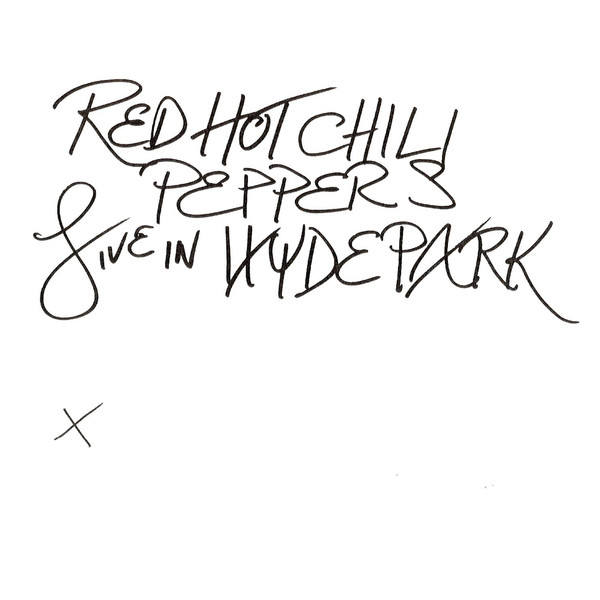 RED HOT CHILI
PEPPERS
LIVE IN HYDE PARK
X